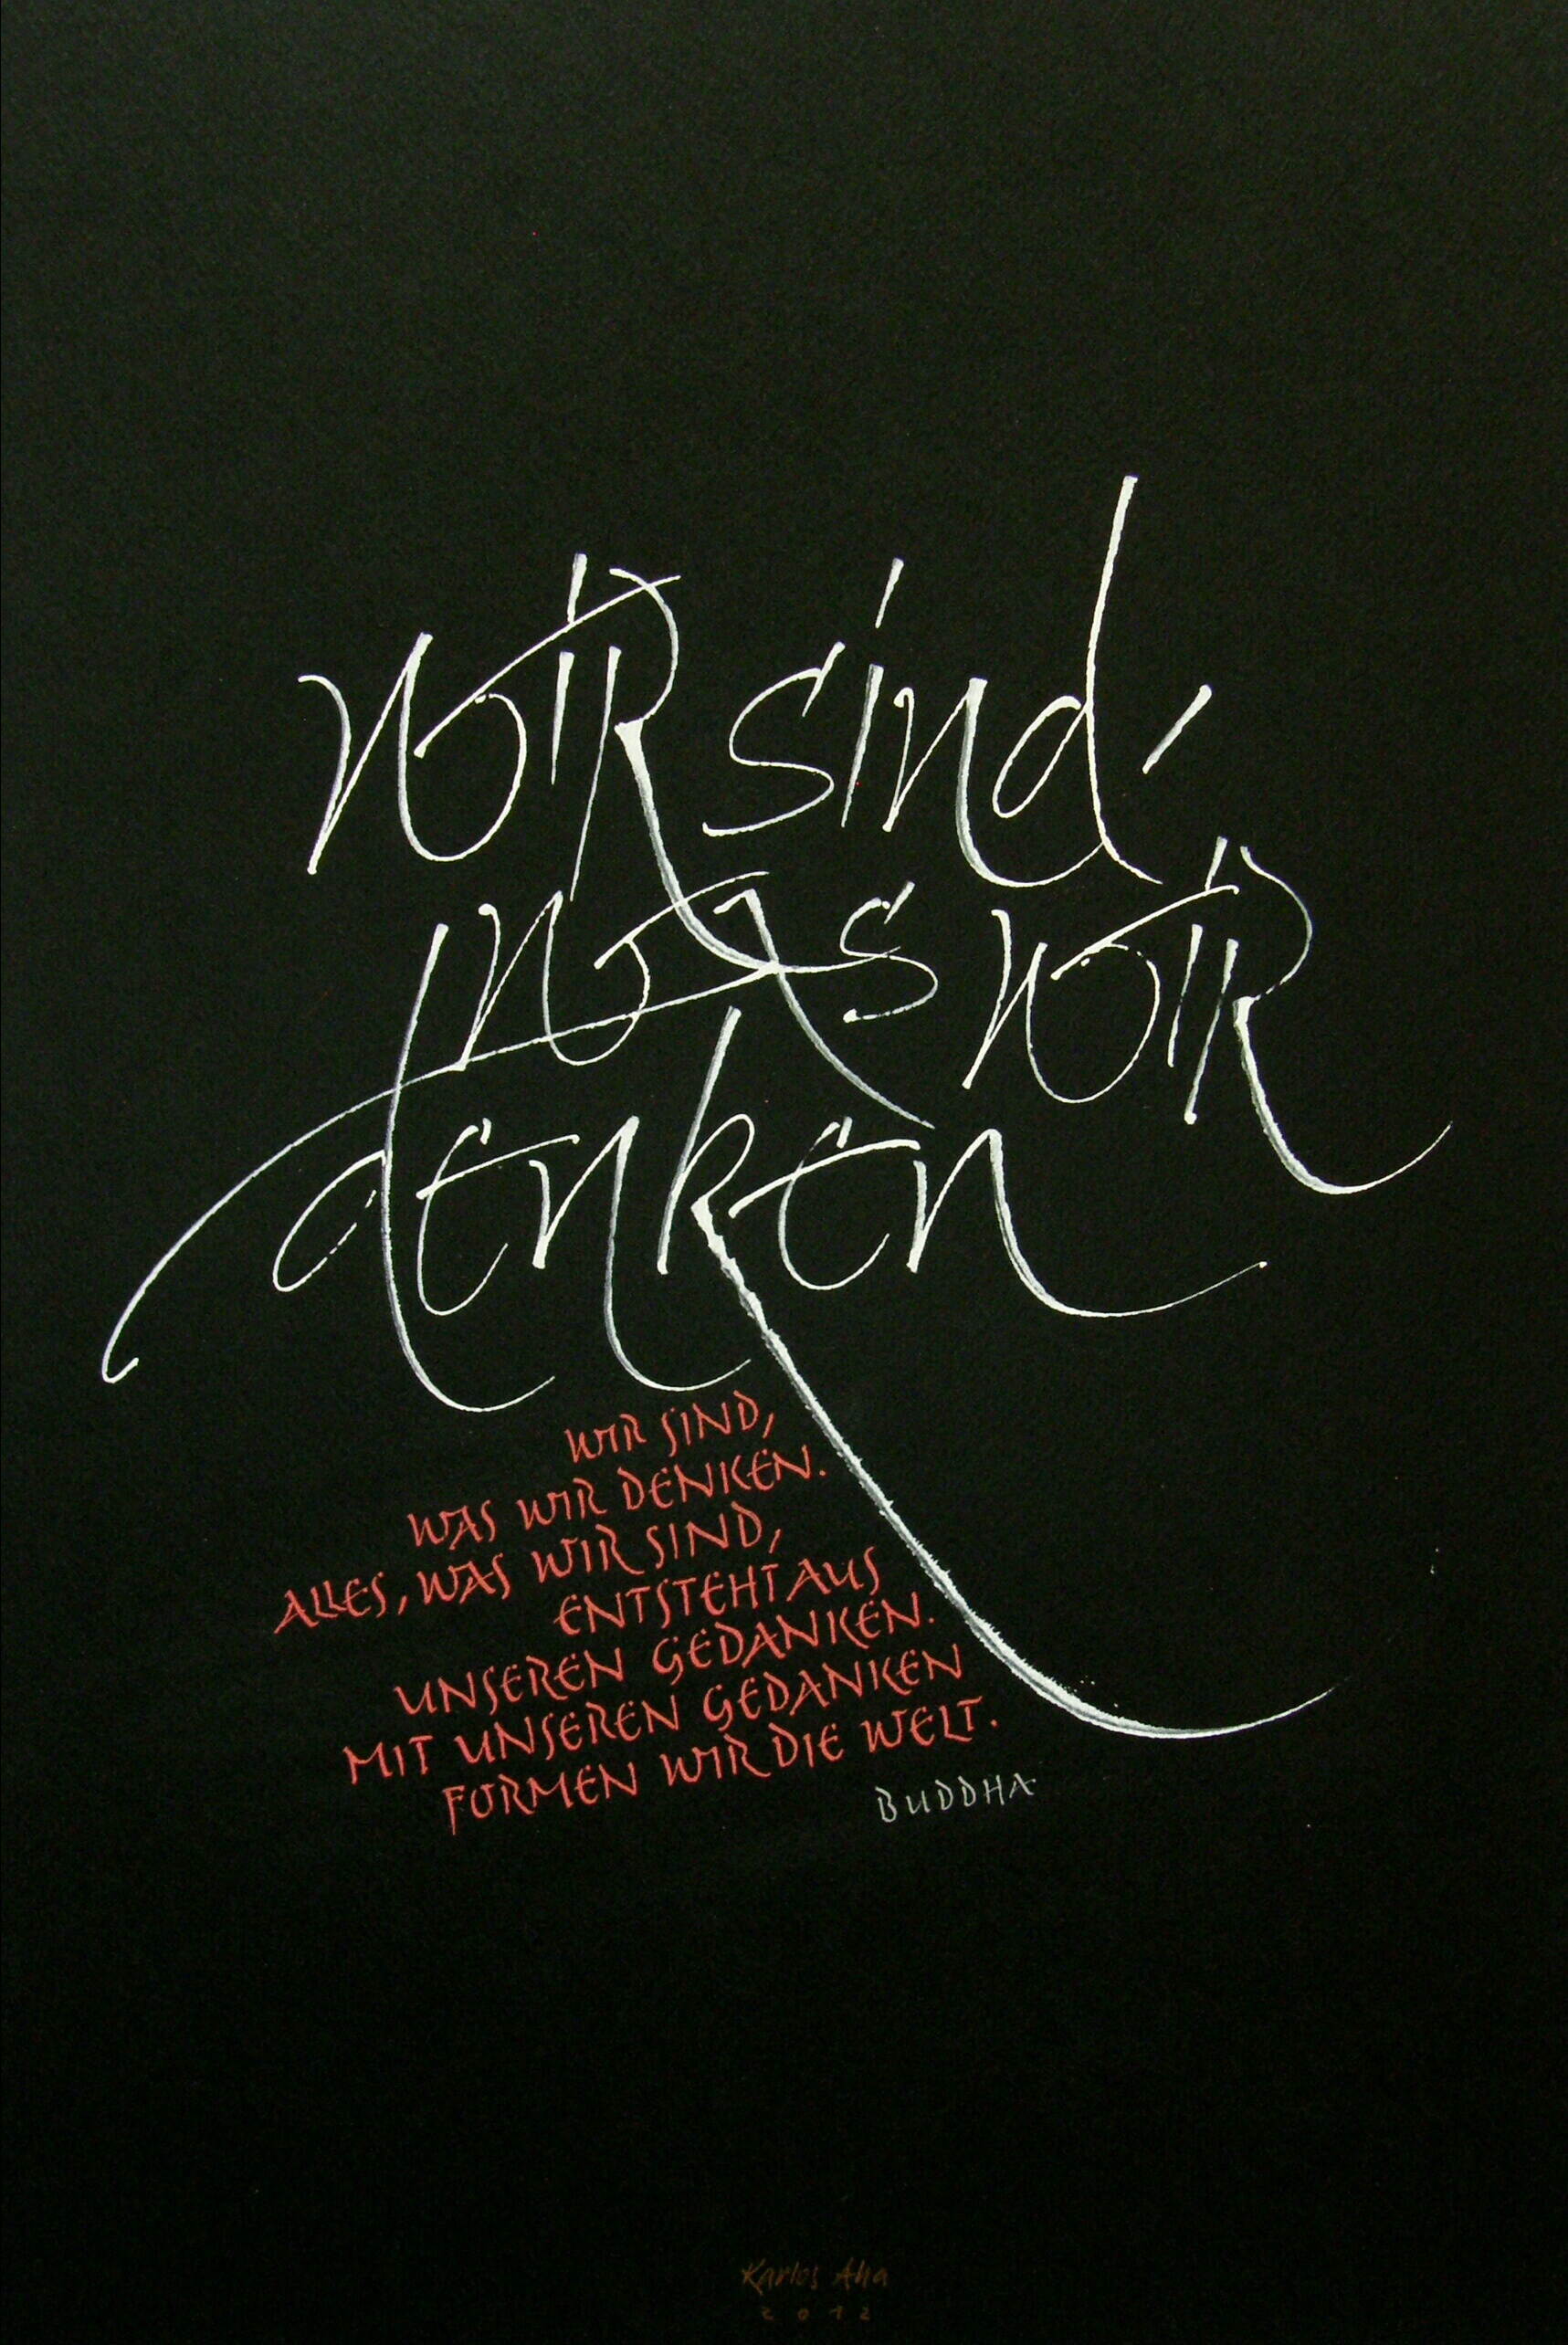 Wir sind,
was wir
denken
WIR SIND,
WAS WIR DENKEN.
ALLES, WAS WIR SIND,
ENTSTEHT AUS
UNSEREN GEDANKEN.
MIT UNSEREN GEDANKEN
FORMEN WIR DIE WELT.
BUDDHA
Karlos Aha
2012